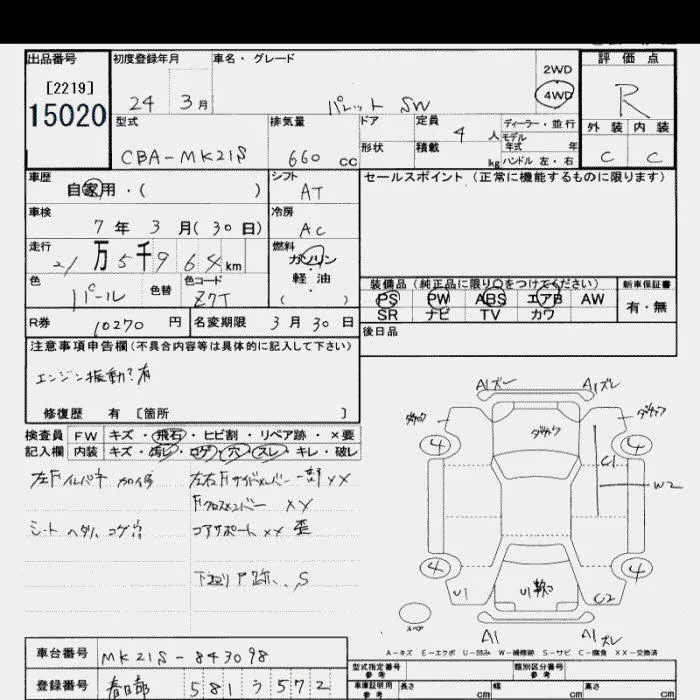 出品番号
[2219]
15020
初度登録年月
24 3月
車名・グレード
パレット SW
2WD
4WD
評価点
R
外装 内装
C C
型式
CBA-MK21S
排気量
660 cc
ドア
形状
定員
4 人
積載
kg
ディーラー・並行
モデル
年式 年
ハンドル 左・右
車歴
自家用・( )
シフト
AT
セールスポイント (正常に機能するものに限ります)
車検
7年 3月(30日)
冷房
AC
走行
21万5千964km
燃料
ガソリン
軽油
( )
色
パール
色替
色コード
Z7T
装備品 (純正品に限り○をつけてください)
PS PW ABS エアB AW
SR ナビ TV カワ
新車保証書
有・無
R券 10270 円
名変期限 3月30日
後日品
注意事項申告欄(不具合内容等は具体的に記入して下さい)
エンジン振動?有
修復歴 有 [箇所 ]
検査員 FW キズ・飛石・ヒビ割・リペア跡・×要
記入欄 内装 キズ・汚レ・コゲ・穴・スレ・キレ・破レ
左右Fサイドメンバー一部XX
Fクロスメンバー XX
シート ヘタリ、コゲ穴
コアサポートXX 歪
S
A1ズレ A1ズレ
4 4
C1
W2
4 4
U1 C2
スペア
A1 A1ズレ
A-キズ E-エクボ U-凹み W-補修跡 S-サビ C-腐食 XX-交換済
車台番号 MK21S-843098
登録番号 春日部 581 う 572
型式指定番号
参考
類別区分番号
参考
車庫証明用
参考
長さ cm
幅 cm
高さ cm